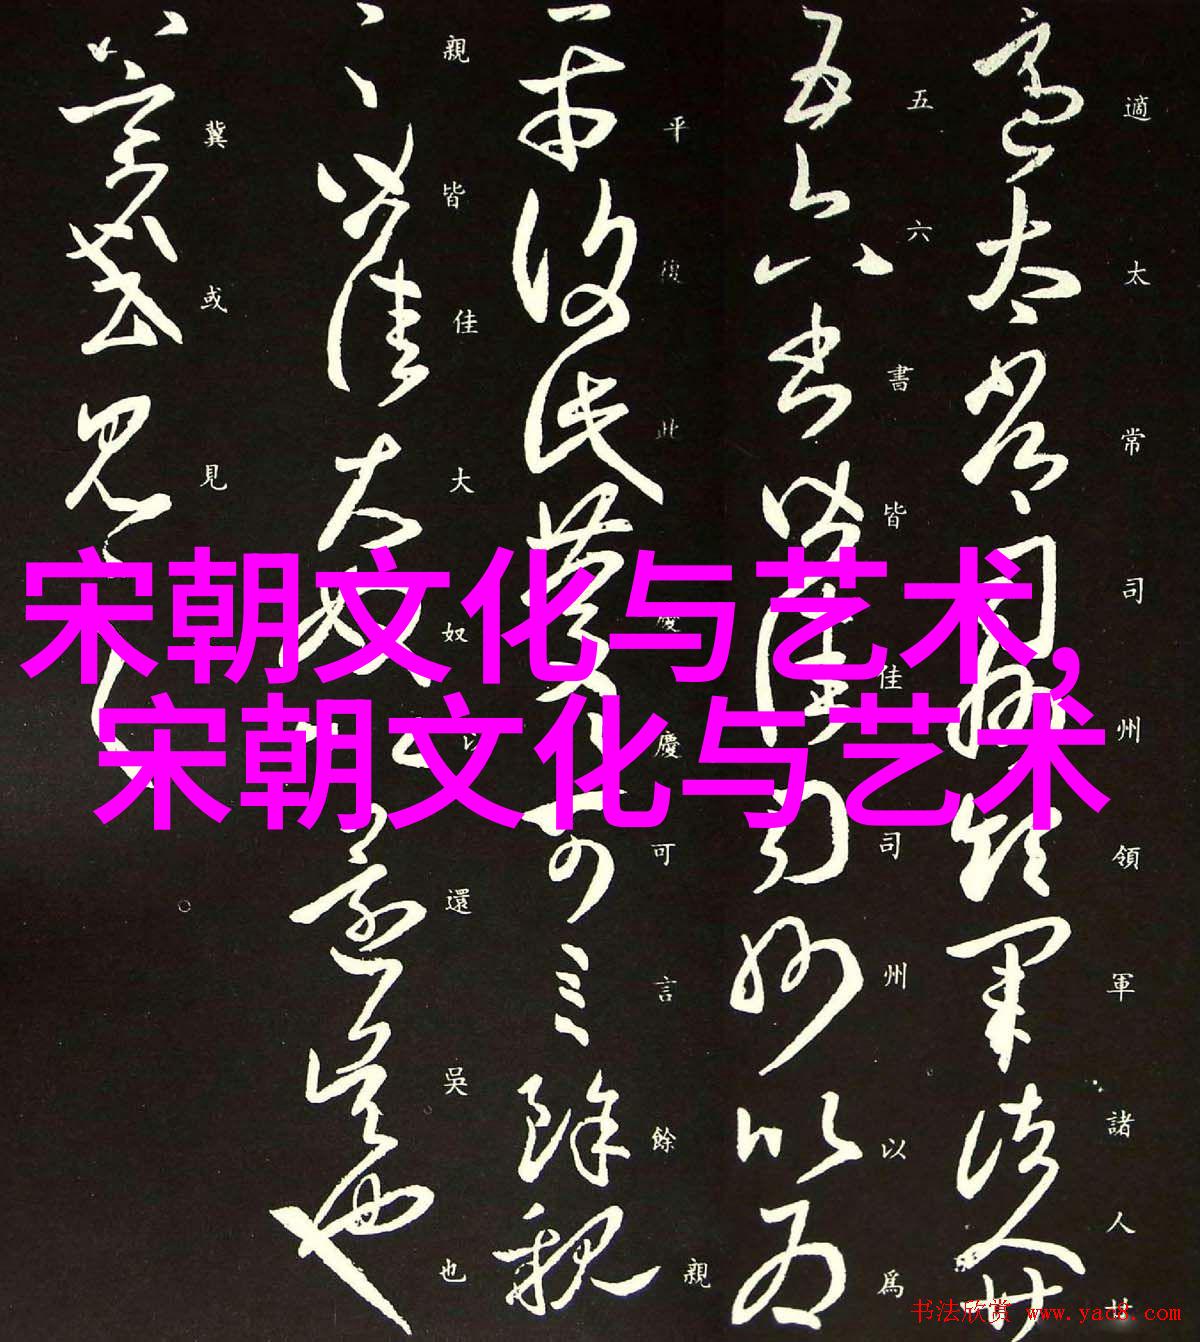 適太常司州領軍諸人廿
五六書皆佳司州以為
平復此慶慶可言餘親
親皆佳大奴以還吳也
冀或見
宋朝文化与艺术,
宋朝文化与艺术
书法欣赏 www.yac8.com